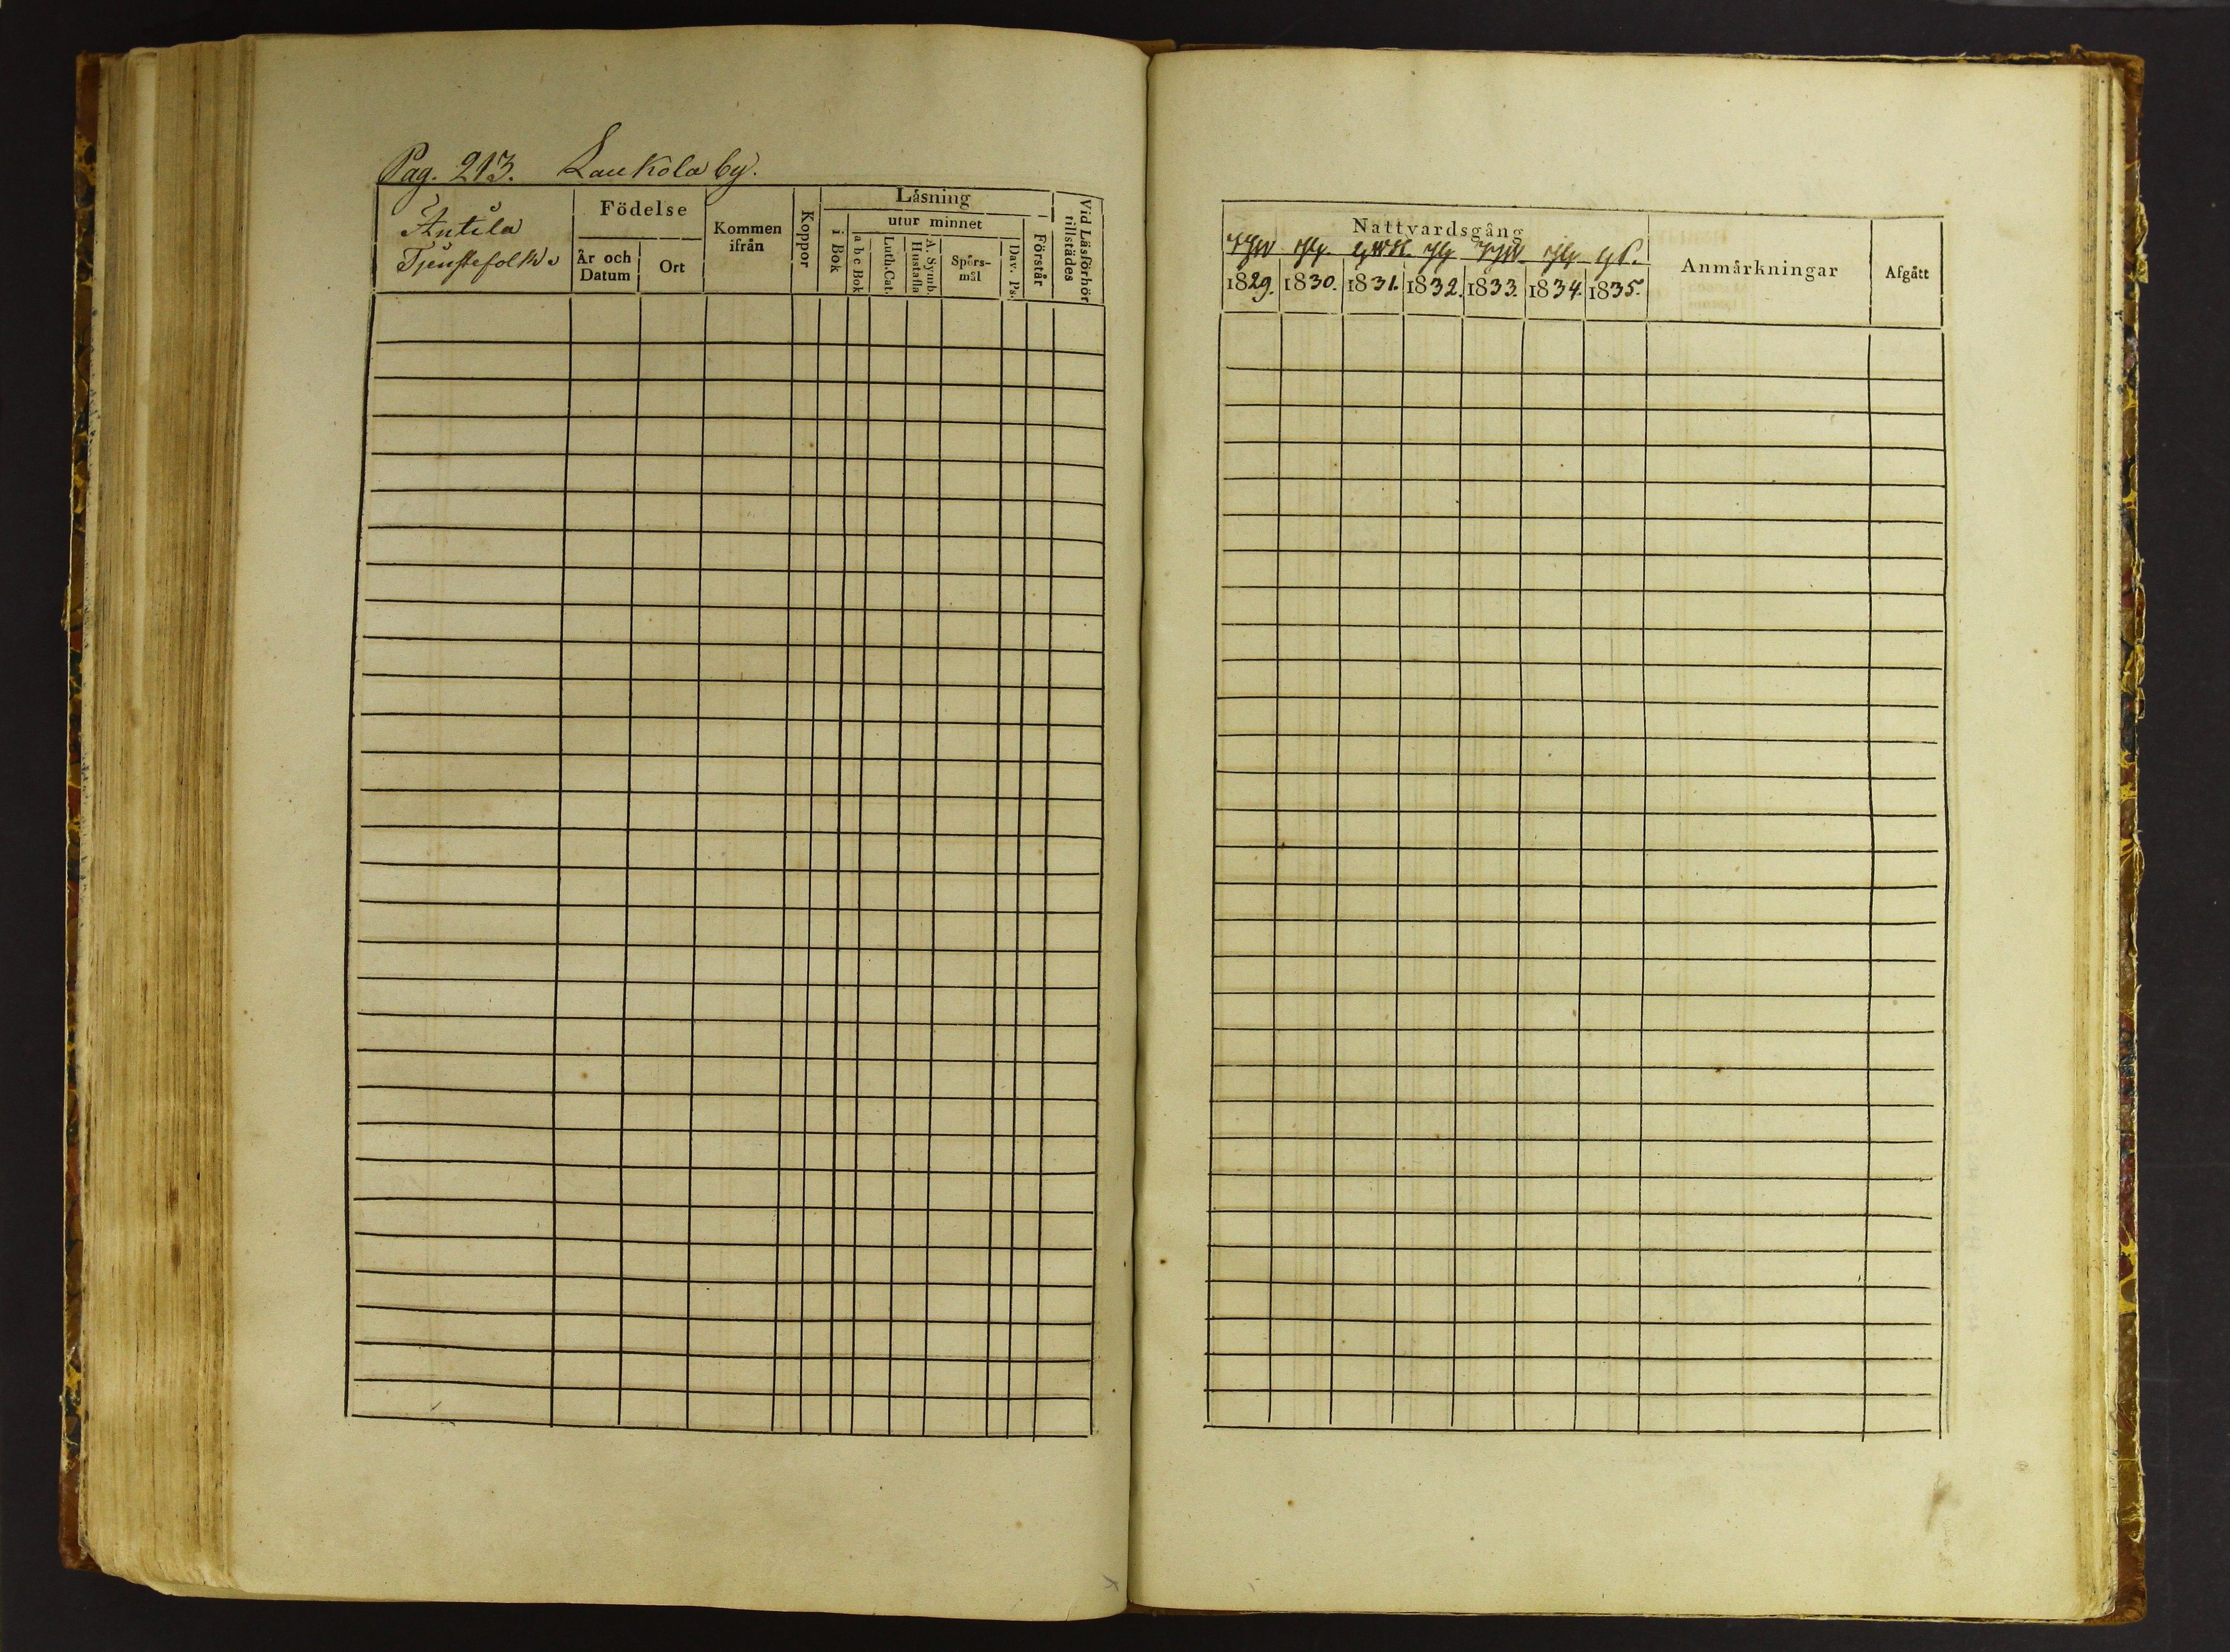 Pag. 213. Laukola by.
Antila
Tjenstefolk
Födelse
År och Datum
Ort
Kommen ifrån
Koppor
Läsning
i Bok
utur minnet
a b c Bok
Luth. Cat.
A. Symb. Hustafla
Spörs-mål
Dav. Ps.
Förstår
Vid Läsförhör tillstädes
Nattvardsgång
1829. 1830. 1831. 1832. 1833. 1834. 1835.
Anmärkningar
Afgått